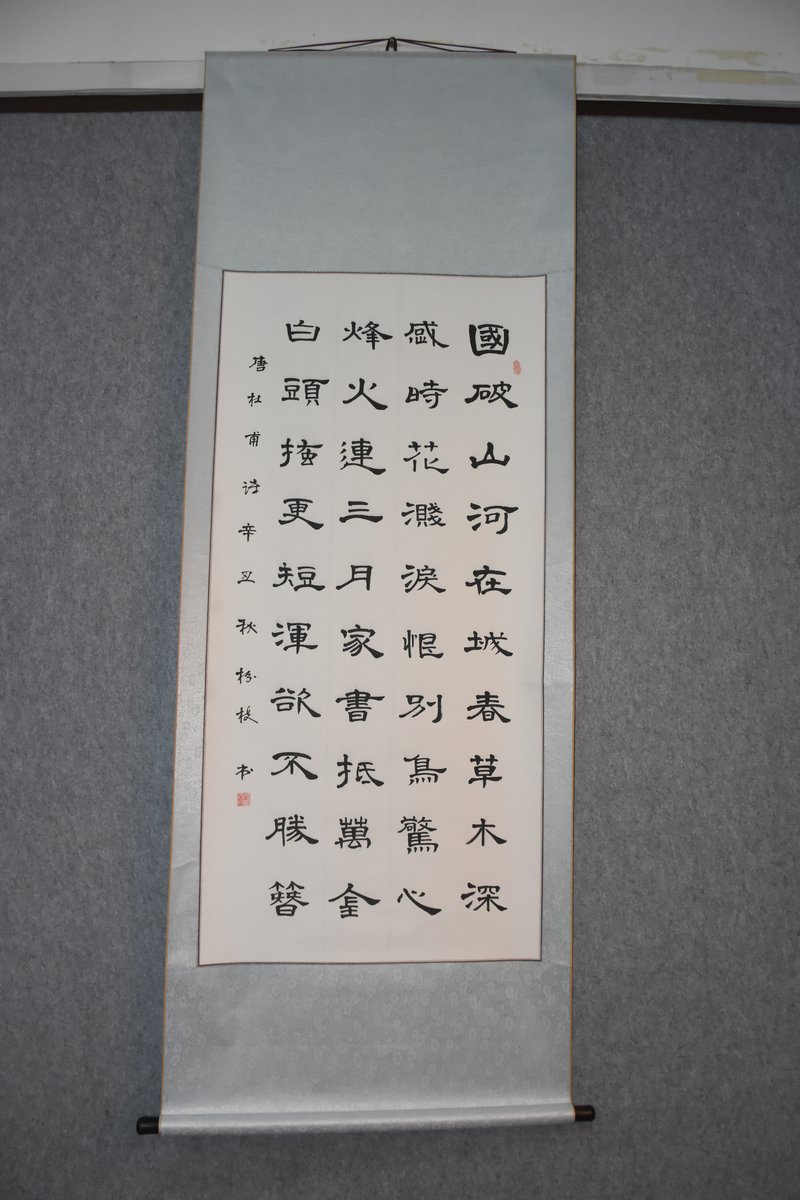 國破山河在城春草木深
感時花濺淚恨別鳥驚心
烽火連三月家書抵萬金
白頭搔更短渾欲不勝簪
唐杜甫詩辛丑秋枌枝书